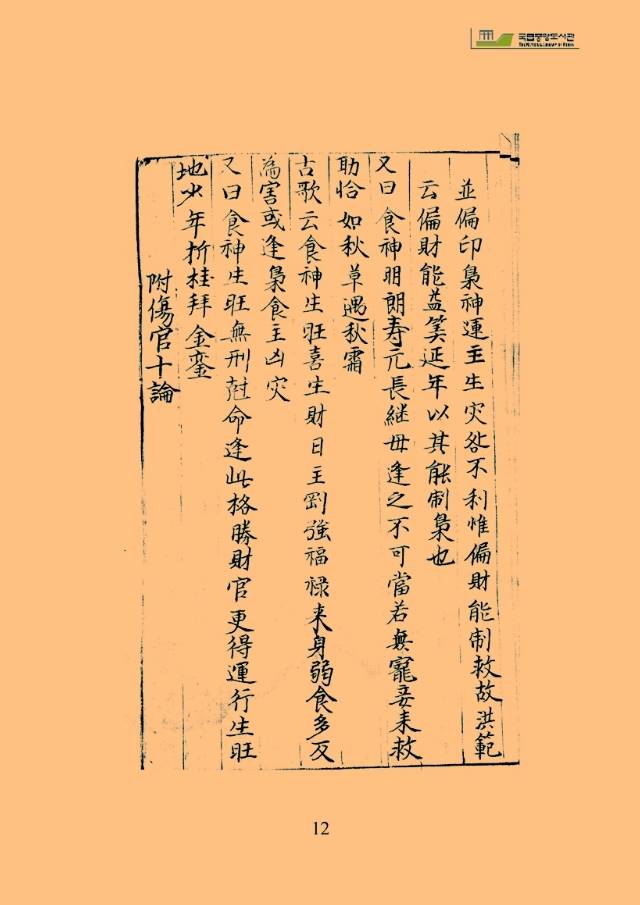 국립중앙도서관
THE NATIONAL LIBRARY OF KOREA
並偏印梟神運主生灾咎不利惟偏財能制救故洪範
云偏財能益筭延年以其能制梟也
又曰食神明朗寿元長継母逢之不可當若無寵妾来救
助恰如秋草遇秋霜
古歌云食神生旺喜生財日主剛強福禄来身弱食多反
為害或逢梟食主凶灾
又曰食神生旺無刑尅命逢此格勝財官更得運行生旺
地少年折桂拜金鑾
附傷官十論
12